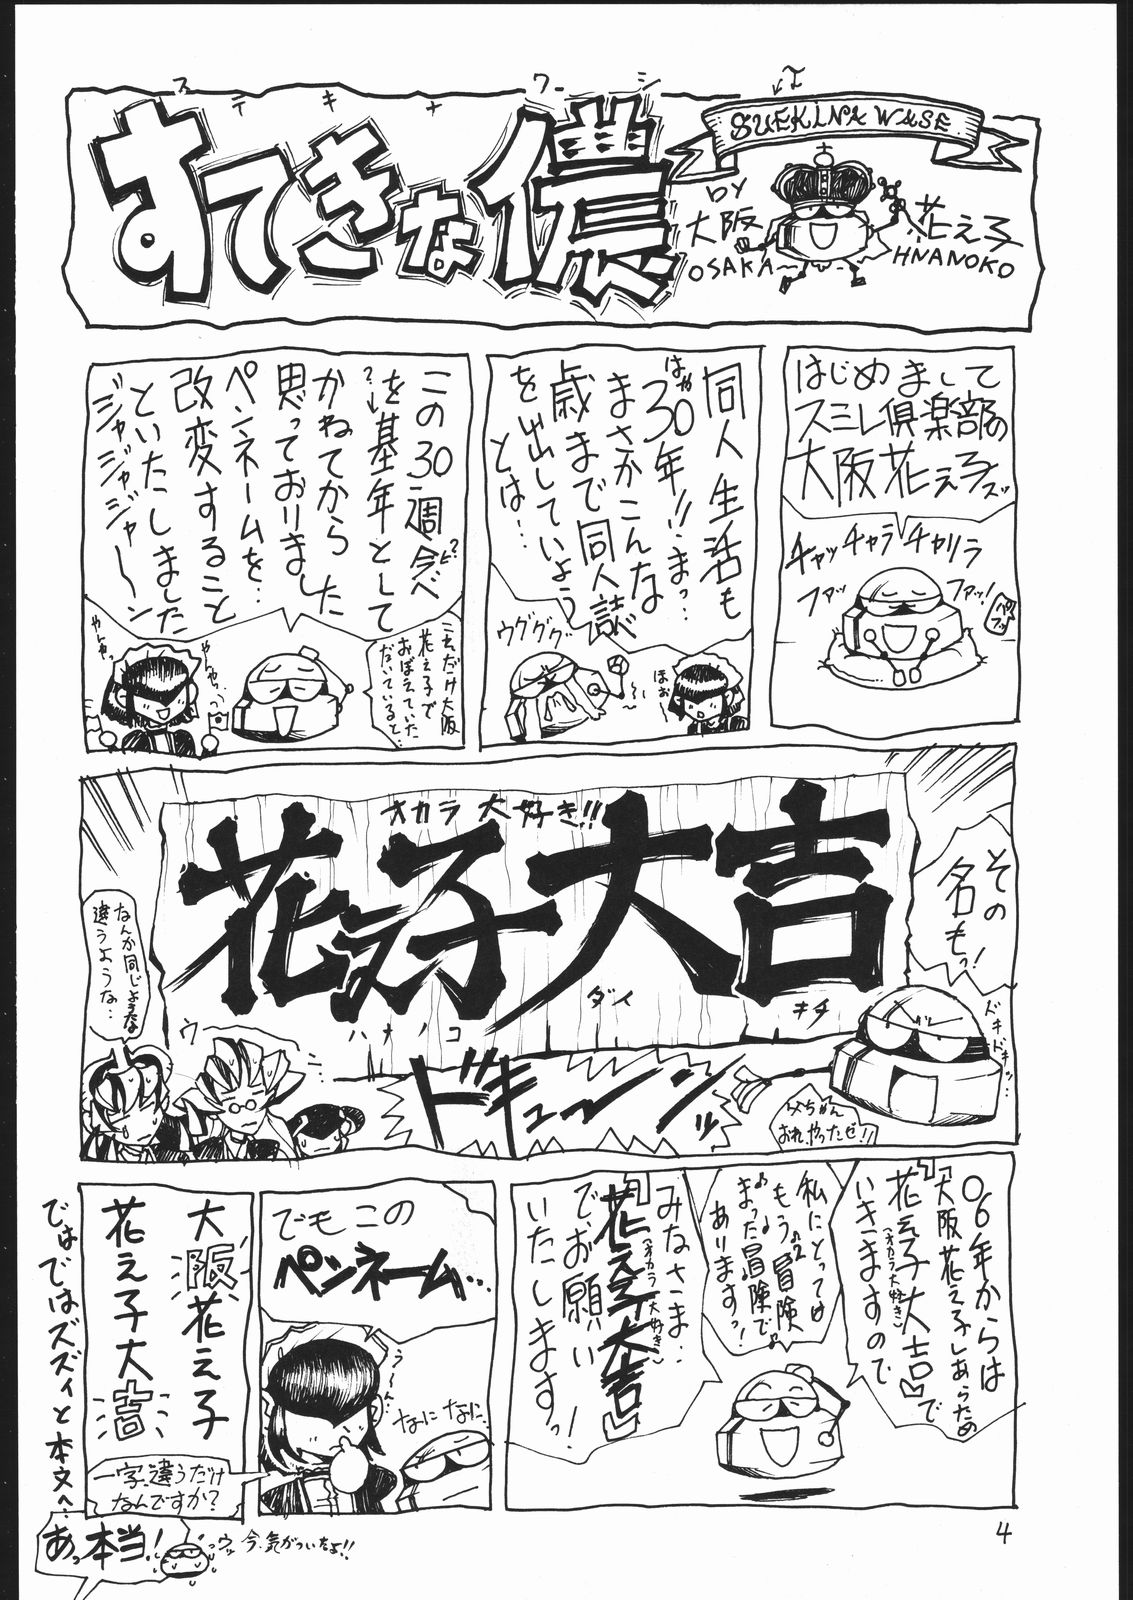 ステキナワシ
すてきな儂
SUEKINA WASE
BY
大阪
花え子
OSAKA
HNANOKO
はじめまして
スミレ倶楽部の
大阪花え子ズ
チャッチャラチャリラ
ファッ
ファッ!
同人生活も
はや30年!!まっ…
まさかこんな
歳まで同人誌
を出していよう
とは…
ウグググ
ほお
この30週今べ
を基年として
かねてから
思っておりました
ペンネームを…
改変すること
といたしました
ジャジャジャジャーン
これだけ大阪
花え子で
おぼえていた
だいていると…
やんやっ
やんやっ
その
名もっ!
オカラ大好き!!
花え子大吉
ハナノコ
ダイ
キチ
なんか同じような
違うような…
ドキドキッ…
ドキューーンッ
父ちゃん
おれ、やったぜ!!
06年からは
『大阪花え子』あらため
『花え子大吉』で
(オカラ大好き)
いきますので
私にとっては
もう冒険
まった冒険で
ありますっ!
みなさま…
『花え子大吉』
(オカラ大好き)
でお願い
いたしますっ!
でもこの
ペンネーム…
うーん…
なになに
大阪花え子
花え子大吉
一字違うだけ
なんですか?
ではではズズィと本文へ…
あっ本当!
ウッ今、気がついたよ!!
4